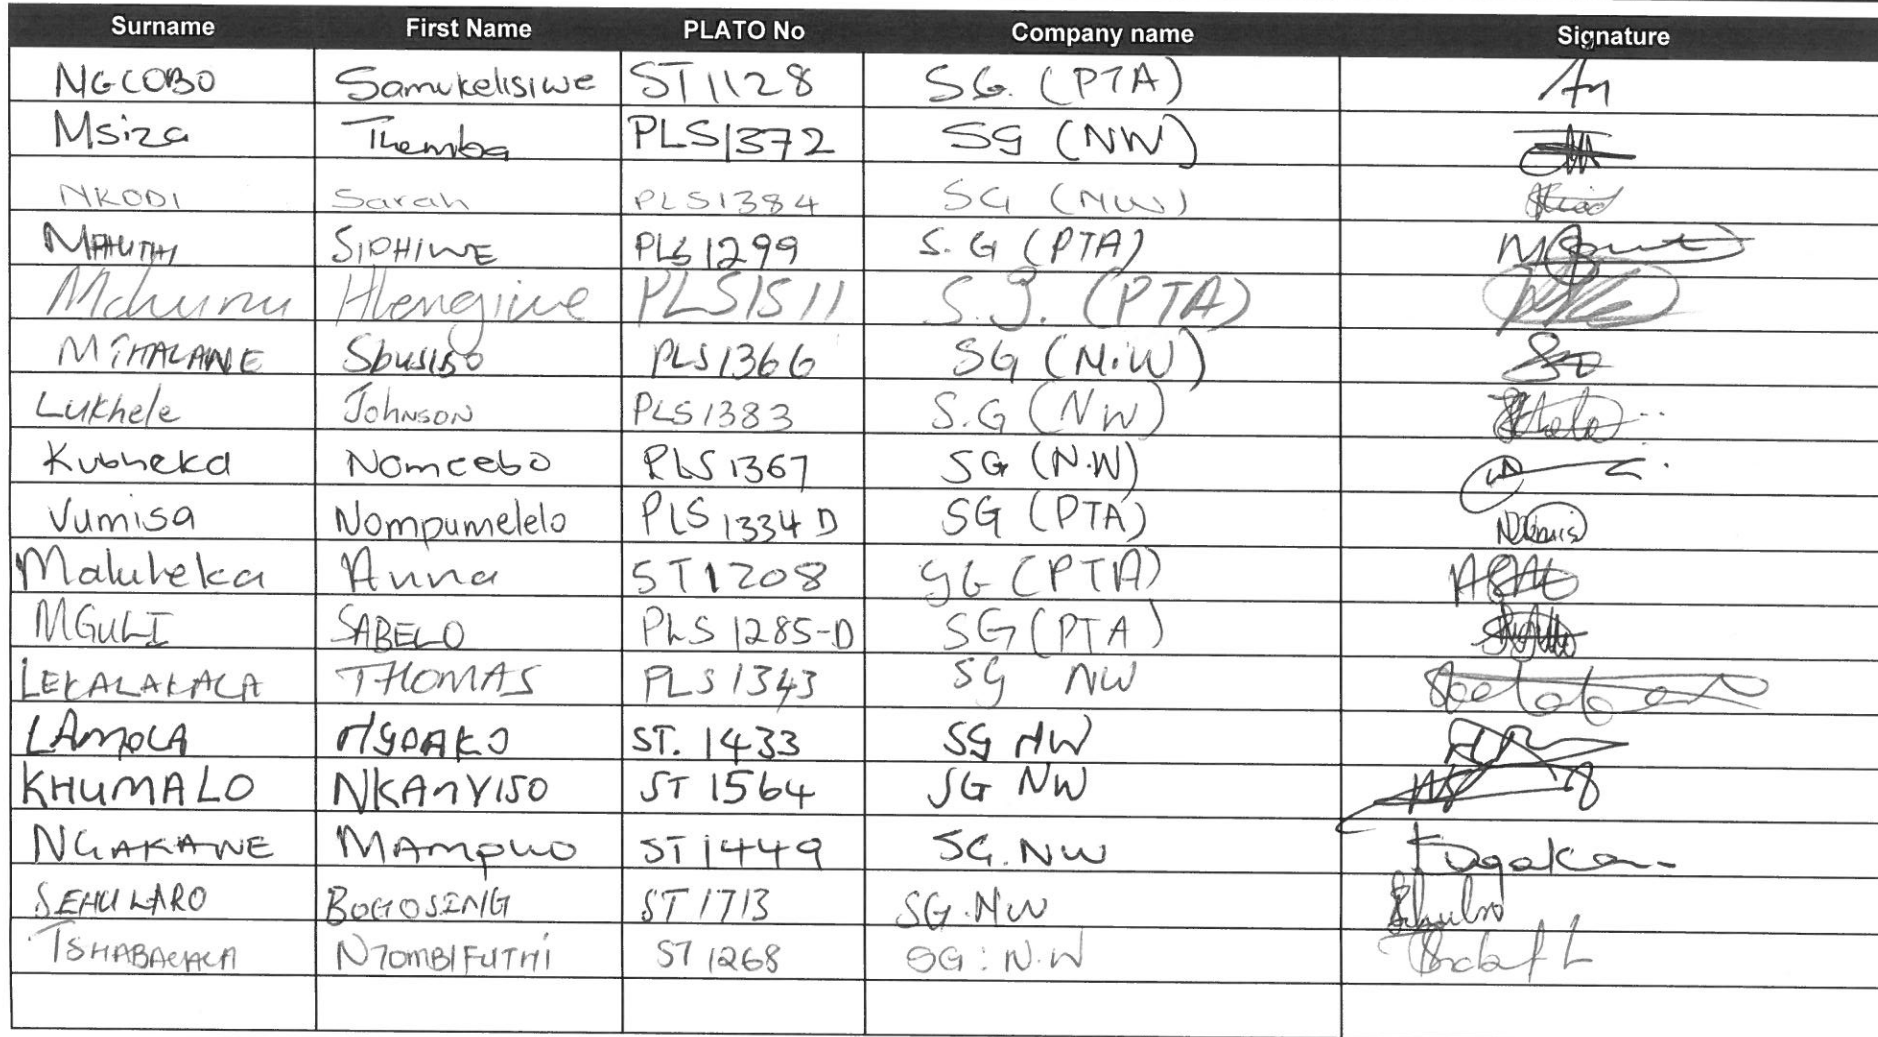 Surname First Name PLATO No Company name Signature
NGCOBO Samukelisiwe ST1128 SG. (PTA)
Msiza Themba PLS1372 SG (NW)
NKODI Sarah PLS1384 SG (NW)
SIPHIWE PLS1299 S.G (PTA)
Mchunu Hlengiwe PLS1511 S.G. (PTA)
MTHALANE Sbusiso PLS1366 SG (N.W)
Lukhele Johnson PLS1383 S.G (NW)
Kubheka Nomcebo PLS1367 SG (N.W)
Vumisa Nompumelelo PLS1334D SG (PTA)
Maluleka Anna ST1208 SG (PTA)
MGULI SABELO PLS 1285-D SG (PTA)
LEKALAKALA THOMAS PLS1343 SG NW
LAMOLA NGOAKO ST. 1433 SG NW
KHUMALO NKANYISO ST 1564 SG NW
NGAKANE MAMPHO ST1449 SG.NW
SEHULARO BOGOSING ST1713 SG.NW
TSHABALALA NTOMBIFUTHI ST1268 SG:N.W